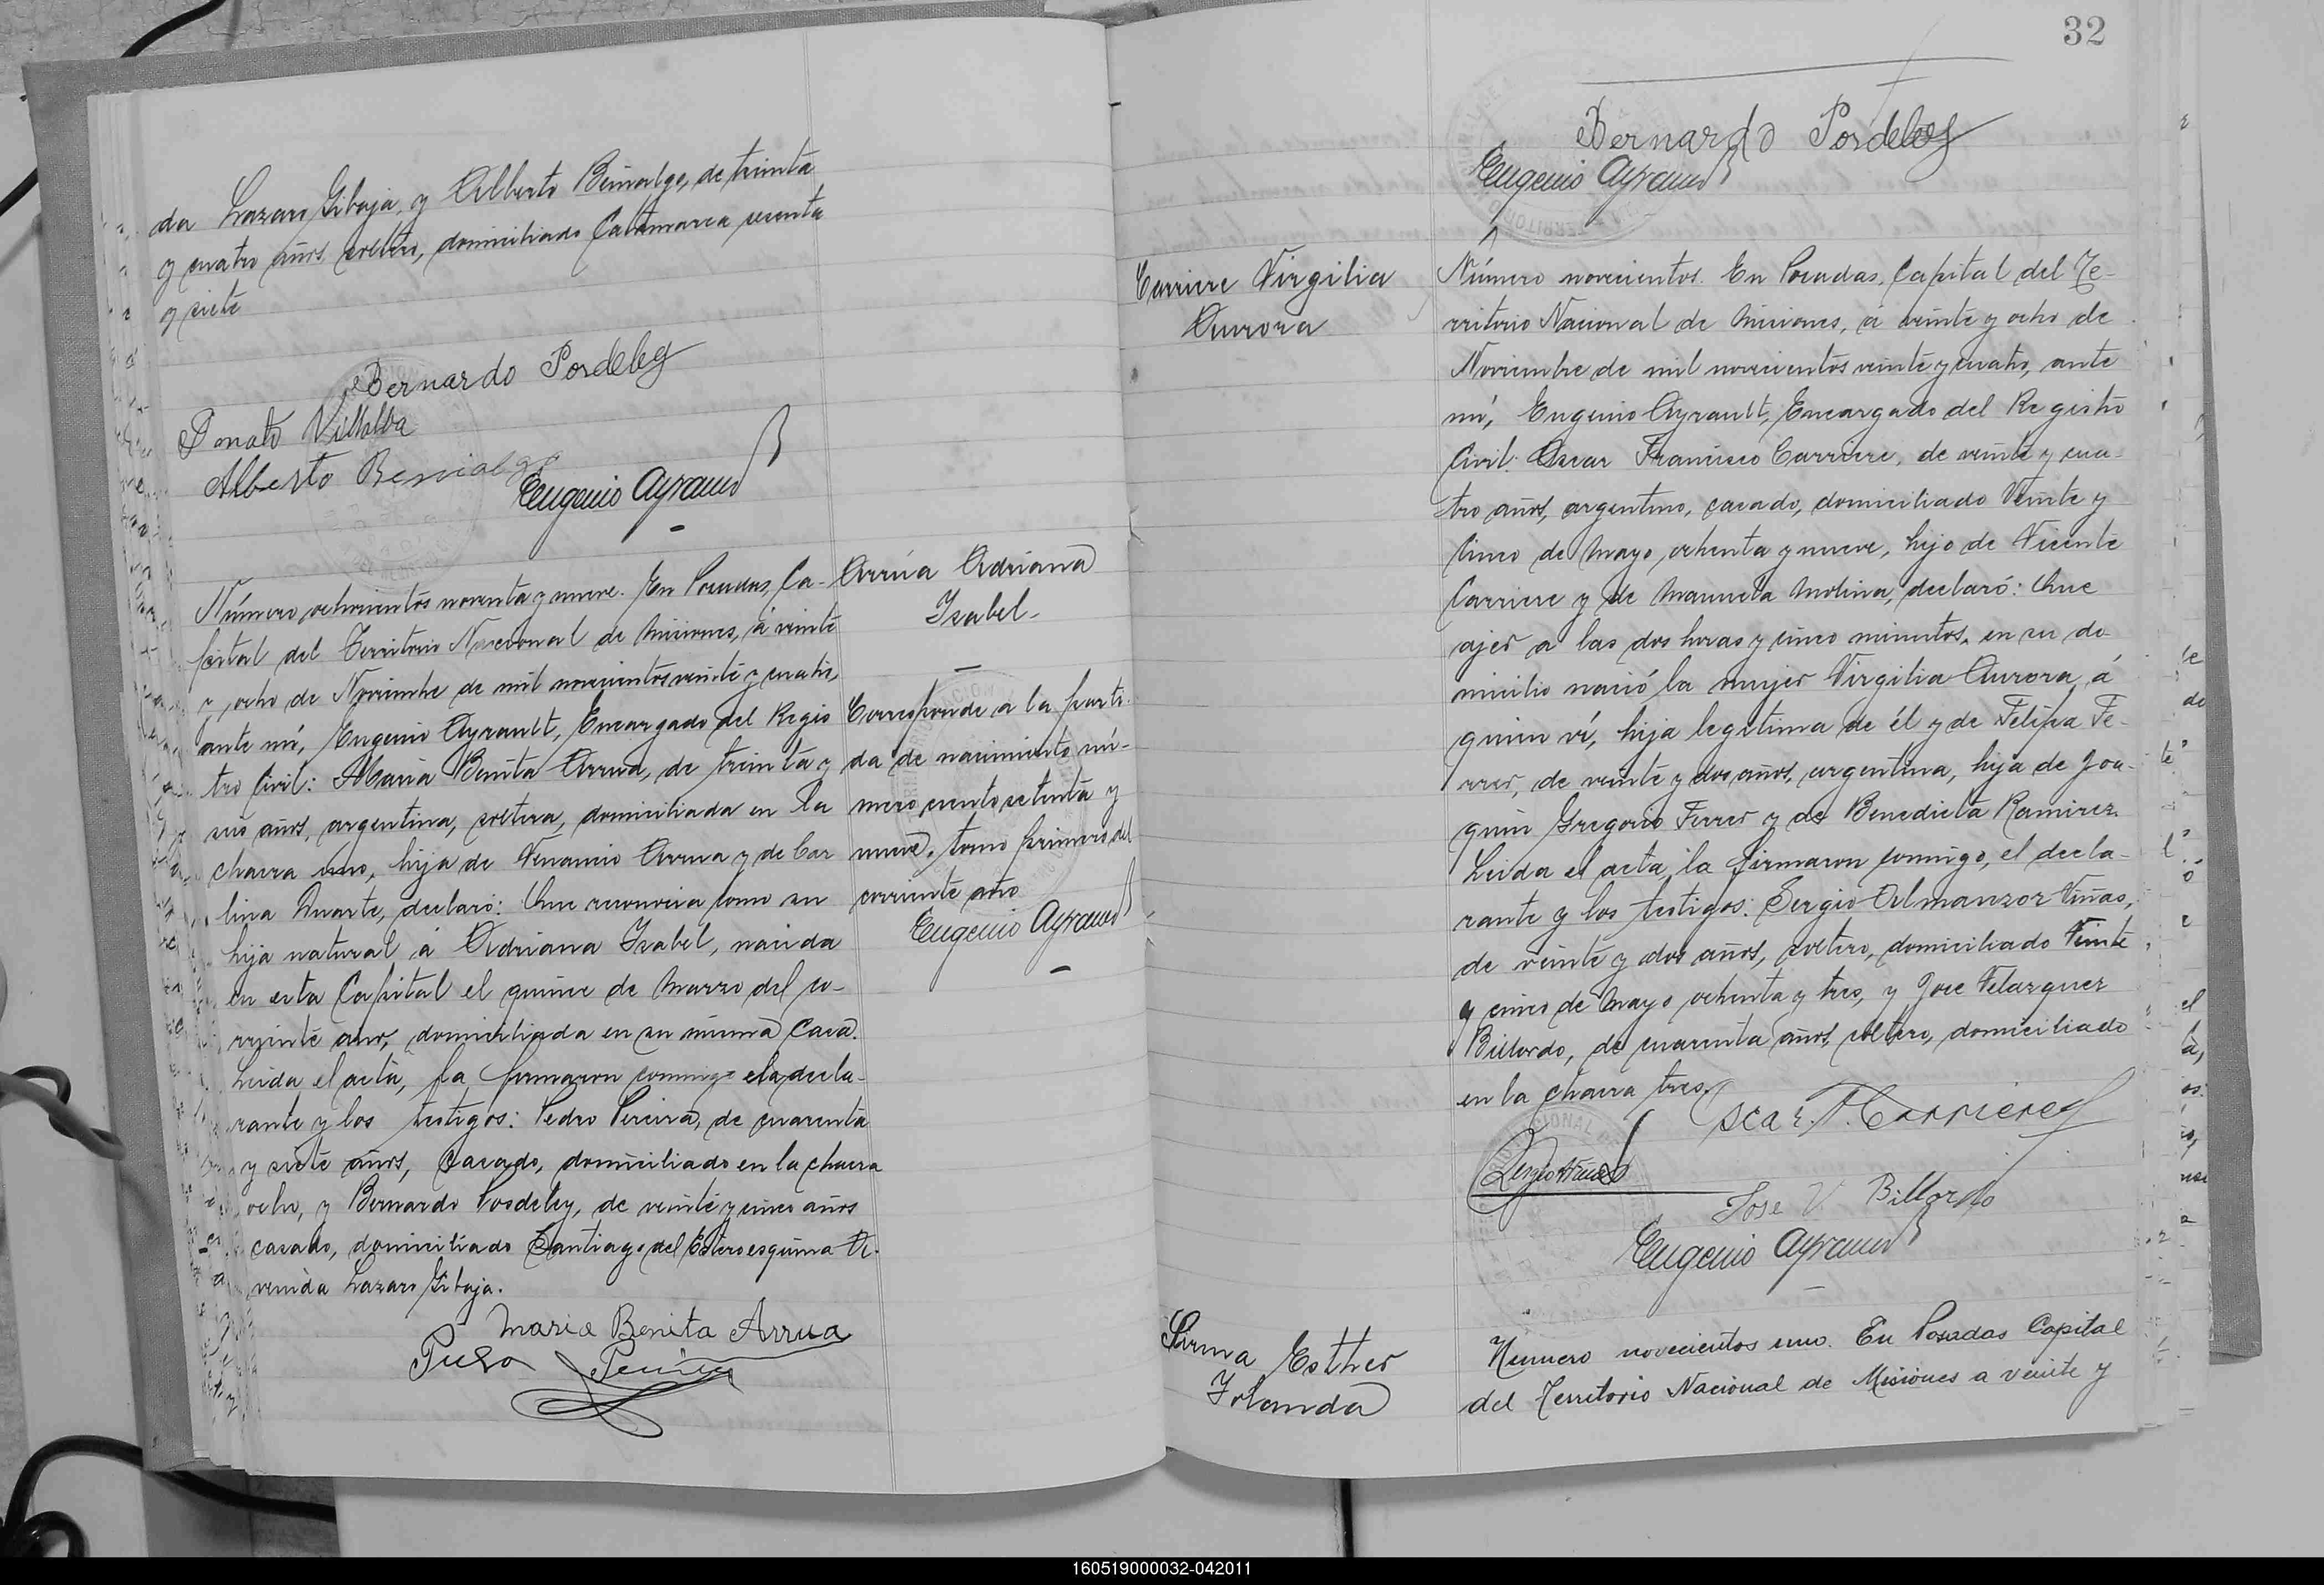 da Lazaro Gibaja, y Alberto Benialgo, de treinta
y cuatro años, soltero, domiciliado Catamarca sesenta
y siete
Bernardo Posdeley
Donato Villalba
Alberto Benialgo
Eugenio Ayrault
Número ochocientos noventa y nueve. En Posadas, Ca-
pital del Territorio Nacional de Misiones, á veinte
y ocho de Noviembre de mil novecientos veinte y cuatro,
ante mí, Eugenio Ayrault, Encargado del Regis
tro Civil: María Benita Arrua, de treinta y
seis años, argentina, soltera, domiciliada en la
chacra uno, hija de Venancio Arrua y de Car
lina Duarte, declaró: Que reconocia como su
hija natural á Adriana Isabel, nacida
en esta Capital el quince de Marzo del co-
rriente año, domiciliada en su misma casa.
Leida el acta, la firmaron conmigo, la decla-
rante y los testigos: Pedro Pereira, de cuarenta
y siete años, casado, domiciliado en la chacra
ocho, y Bernardo Posdeley, de veinte y cinco años
casado, domiciliado Santiago del Estero esquina A-
venida Lazaro Gibaja.
Maria Benita Arrua
Pedro Pereira
Arrúa Adriana
Isabel-
Corresponde a la parti-
da de nacimiento nú-
mero ciento setenta y
nueve, tomo primero del
corriente año
Eugenio Ayrault
32
Bernardo Posdeley
Eugenio Ayrault
Carriere Virgilia
Aurora
Número novecientos. En Posadas, Capital del Te-
rritorio Nacional de Misiones, á veinte y ocho de
Noviembre de mil novecientos veinte y cuatro, ante
mí, Eugenio Ayrault, Encargado del Registro
Civil: Oscar Francisco Carriere, de veinte y cua-
tro años, argentino, casado, domiciliado Veinte y
cinco de Mayo, ochenta y nueve, hijo de Vicente
Carriere y de Manuela Molina, declaró: Que
ayer a las dos horas y cinco minutos, en su do-
micilio nació la mujer Virgilia Aurora, á
quien ví, hija legitima de él y de Felipa Fe-
rrer, de veinte y dos años, argentina, hija de Joa-
quin Gregorio Ferrer y de Benedicta Ramirez.
Leida el acta, la firmaron conmigo, el decla-
rante y los testigos: Sergio Almanzor Viñas,
de veinte y dos años, soltero, domiciliado Veinte
y cinco de Mayo ochenta y tres, y Jose Velazquez
Billordo, de cuarenta años, soltero, domiciliado
en la chacra tres.
Oscar F. Carriere
Sergio A Viñas
Jose V. Billordo
Eugenio Ayrault
Esther
Yolanda
Número novecientos uno. En Posadas Capital
del Territorio Nacional de Misiones a veinte y
160519000032-042011